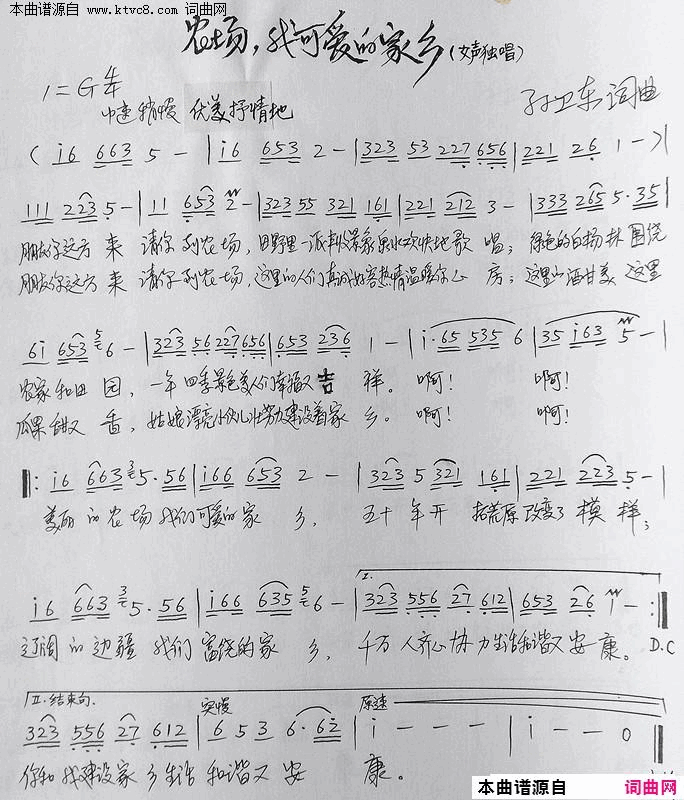 本曲谱源自 www.ktvc8.com 词曲网
农场,我可爱的家乡(女声独唱)
1=G 4/4
中速稍慢 优美抒情地
孙卫东词曲
(i6 663 5 - | i6 653 2 - | 323 53 227 656 | 221 26 1 - )|
111 223 5 - | 11 653 2 - | 323 55 321 161 | 221 212 3 - | 333 265 5·35 |
朋友你远方 来 请你到农场, 田野里一派丰收景象 泉水欢快地歌 唱; 绿色的白杨林 围绕
朋友你远方 来 请你到农场, 这里的人们真诚好客热情温暖你心 房; 这里的酒甘美 这里
6i 653 5 6 - | 323 56 227 656 | 653 236 1 - | i·65 535 6 | 35 i63 5 - |
农家和田 园, 一年四季景色美人们幸福又 吉 祥。 啊! 啊!
瓜果甜又 香, 姑娘漂亮小伙儿壮努力建设着家 乡。 啊! 啊!
‖: i6 663 3 5·56 | i66 653 2 - | 323 5 321 161 | 221 223 5 - |
美丽 的 农场 我们可爱的 家 乡, 五十 年 开 拓荒原 改变了 模 样;
i6 663 3 5·56 | i66 635 5 6 - | I. 323 556 27 612 | 653 26 i - :‖
辽阔 的 边疆 我们 富饶的家 乡, 千万 人齐心 协 力 生活和谐又 安 康。 D.C
II.结束句. 突慢 原速
323 556 27 612 | 6 5 3 6·62 | i - - - | i - - 0 ‖
你和 我建设家 乡 生活 和谐又 安 康。
本曲谱源自 词曲网